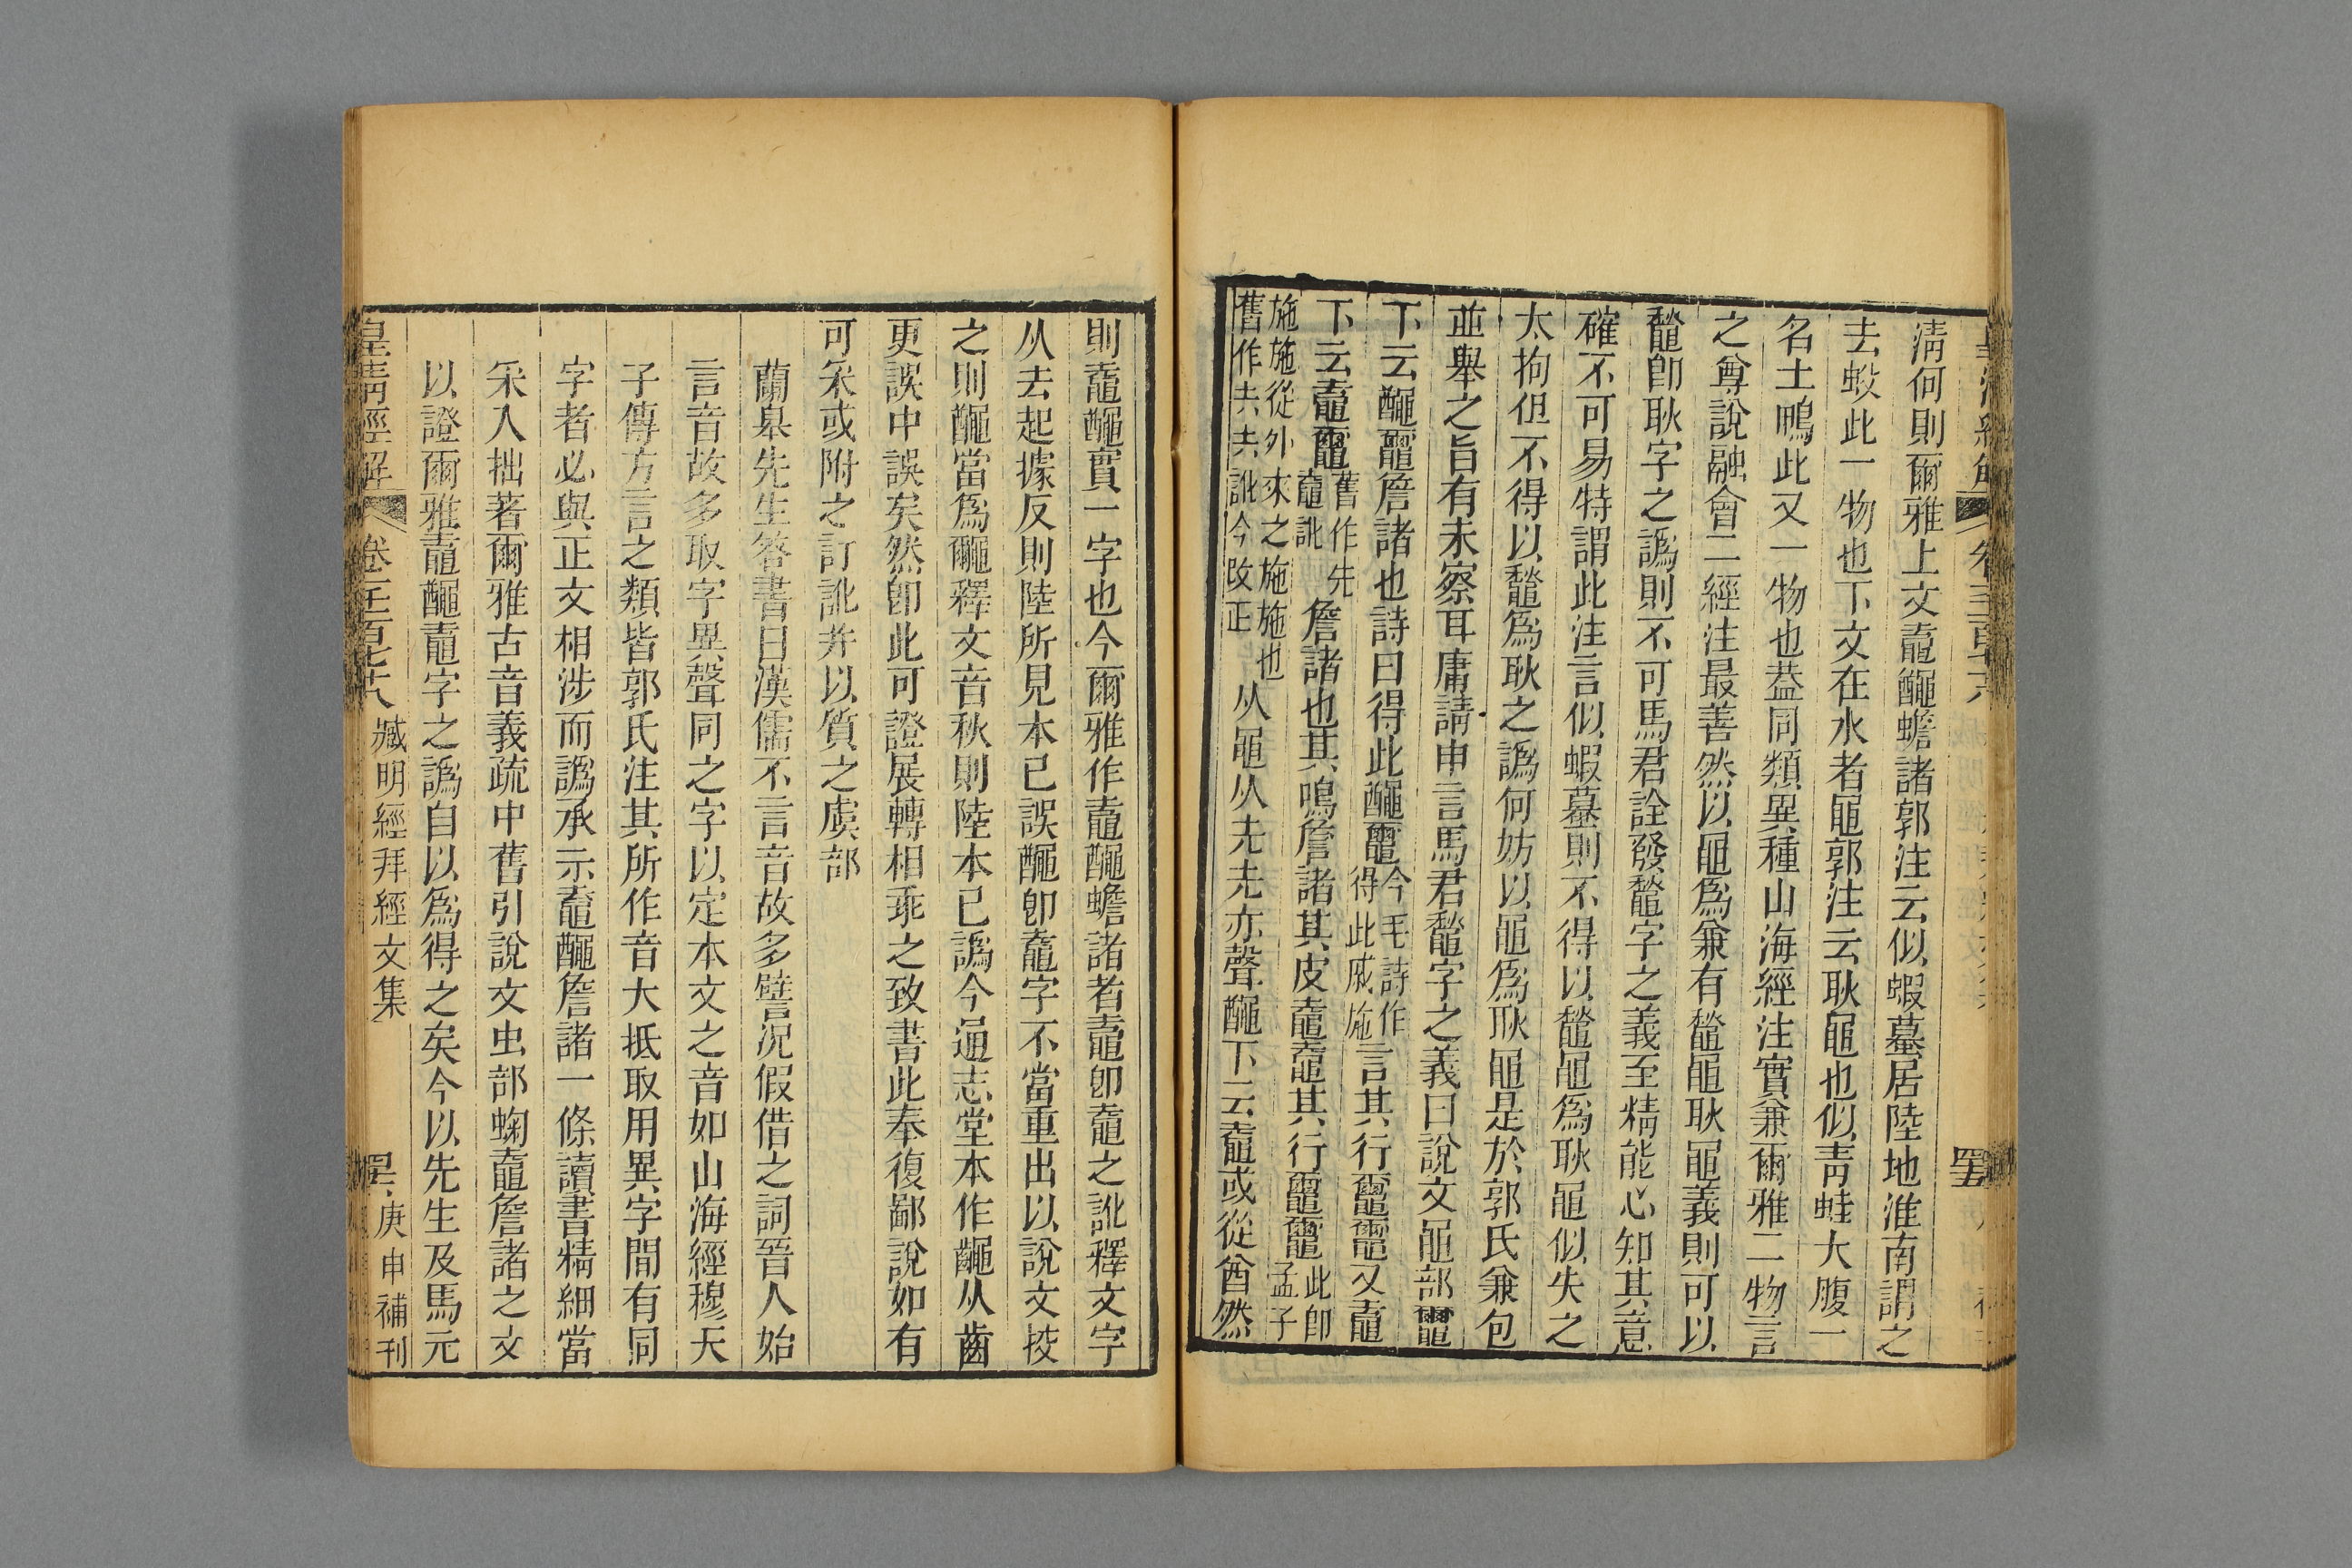 淸何則爾雅上文鼀𪓿蟾諸郭注云似蝦蟇居陸地淮南謂之
去蚥此一物也下文在水者黽郭注云耿黽也似靑蛙大腹一
名土鴨此又一物也葢同類異種山海經注實兼爾雅二物言
之尊說融會二經注最善然以黽爲兼有鼃黽耿黽義則可以
鼃卽耿字之譌則不可馬君詮發鼃字之義至精能心知其意
確不可易特謂此注言似蝦蟇則不得以鼃黽爲耿黽似失之
太拘但不得以鼃爲耿之譌何妨以黽爲耿黽是於郭氏兼包
並舉之旨有未察耳庸請申言馬君鼃字之義曰說文黽部鼀
下云𪓿𪓰詹諸也詩曰得此𪓿𪓰今毛詩作得此戚施言其行𪓰𪓰又鼀
下云鼀𪓰舊作先鼀訛詹諸也其鳴詹諸其皮鼀鼀其行𪓰𪓰此卽孟子
施施從外來之施施也舊作圥圥訛今改正从黽从圥圥亦聲𪓿下云鼀或從酋然
則鼀𪓿實一字也今爾雅作鼀𪓿蟾諸者鼀卽鼀之訛釋文字
从去起據反則陸所見本已誤𪓿卽鼀字不當重出以說文挍
之則𪓿當爲𪓰釋文音秋則陸本已譌今通志堂本作𪓿从齒
更誤中誤矣然卽此可證展轉相乖之致書此奉復鄙說如有
可采或附之訂訛幷以質之虔部
蘭皋先生答書曰漢儒不言音故多譬況假借之詞晉人始
言音故多取字異聲同之字以定本文之音如山海經穆天
子傳方言之類皆郭氏注其所作音大抵取用異字間有同
字者必與正文相涉而譌承示鼀𪓿詹諸一條讀書精細當
采入拙著爾雅古音義疏中舊引說文虫部蜠鼀詹諸之文
以證爾雅鼀𪓿鼀字之譌自以爲得之矣今以先生及馬元
皇淸經解 卷一千一百七十八 臧明經拜經文集 庚申補刊